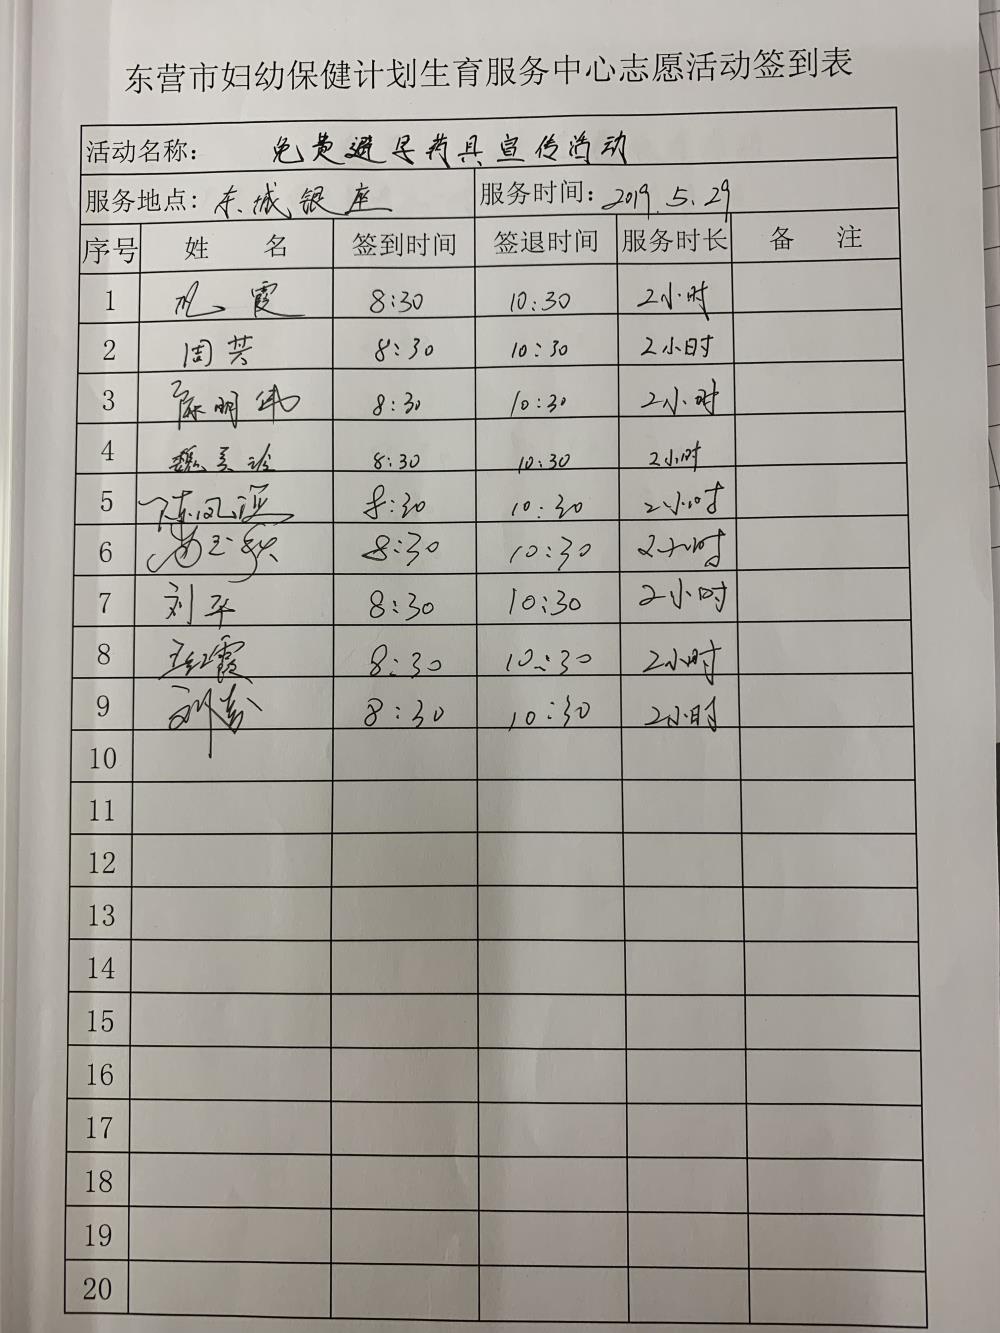 东营市妇幼保健计划生育服务中心志愿活动签到表
活动名称: 免费避孕药具宣传活动
服务地点: 东城银座 服务时间: 2019.5.29
序号 姓 名 签到时间 签退时间 服务时长 备 注
1 霞 8:30 10:30 2小时
2 周芸 8:30 10:30 2小时
3 陈明伟 8:30 10:30 2小时
4 魏美 8:30 10:30 2小时
5 陈凤 8:30 10:30 2小时
6 玉 8:30 10:30 2小时
7 刘平 8:30 10:30 2小时
8 王红霞 8:30 10:30 2小时
9 刘 8:30 10:30 2小时
10
11
12
13
14
15
16
17
18
19
20